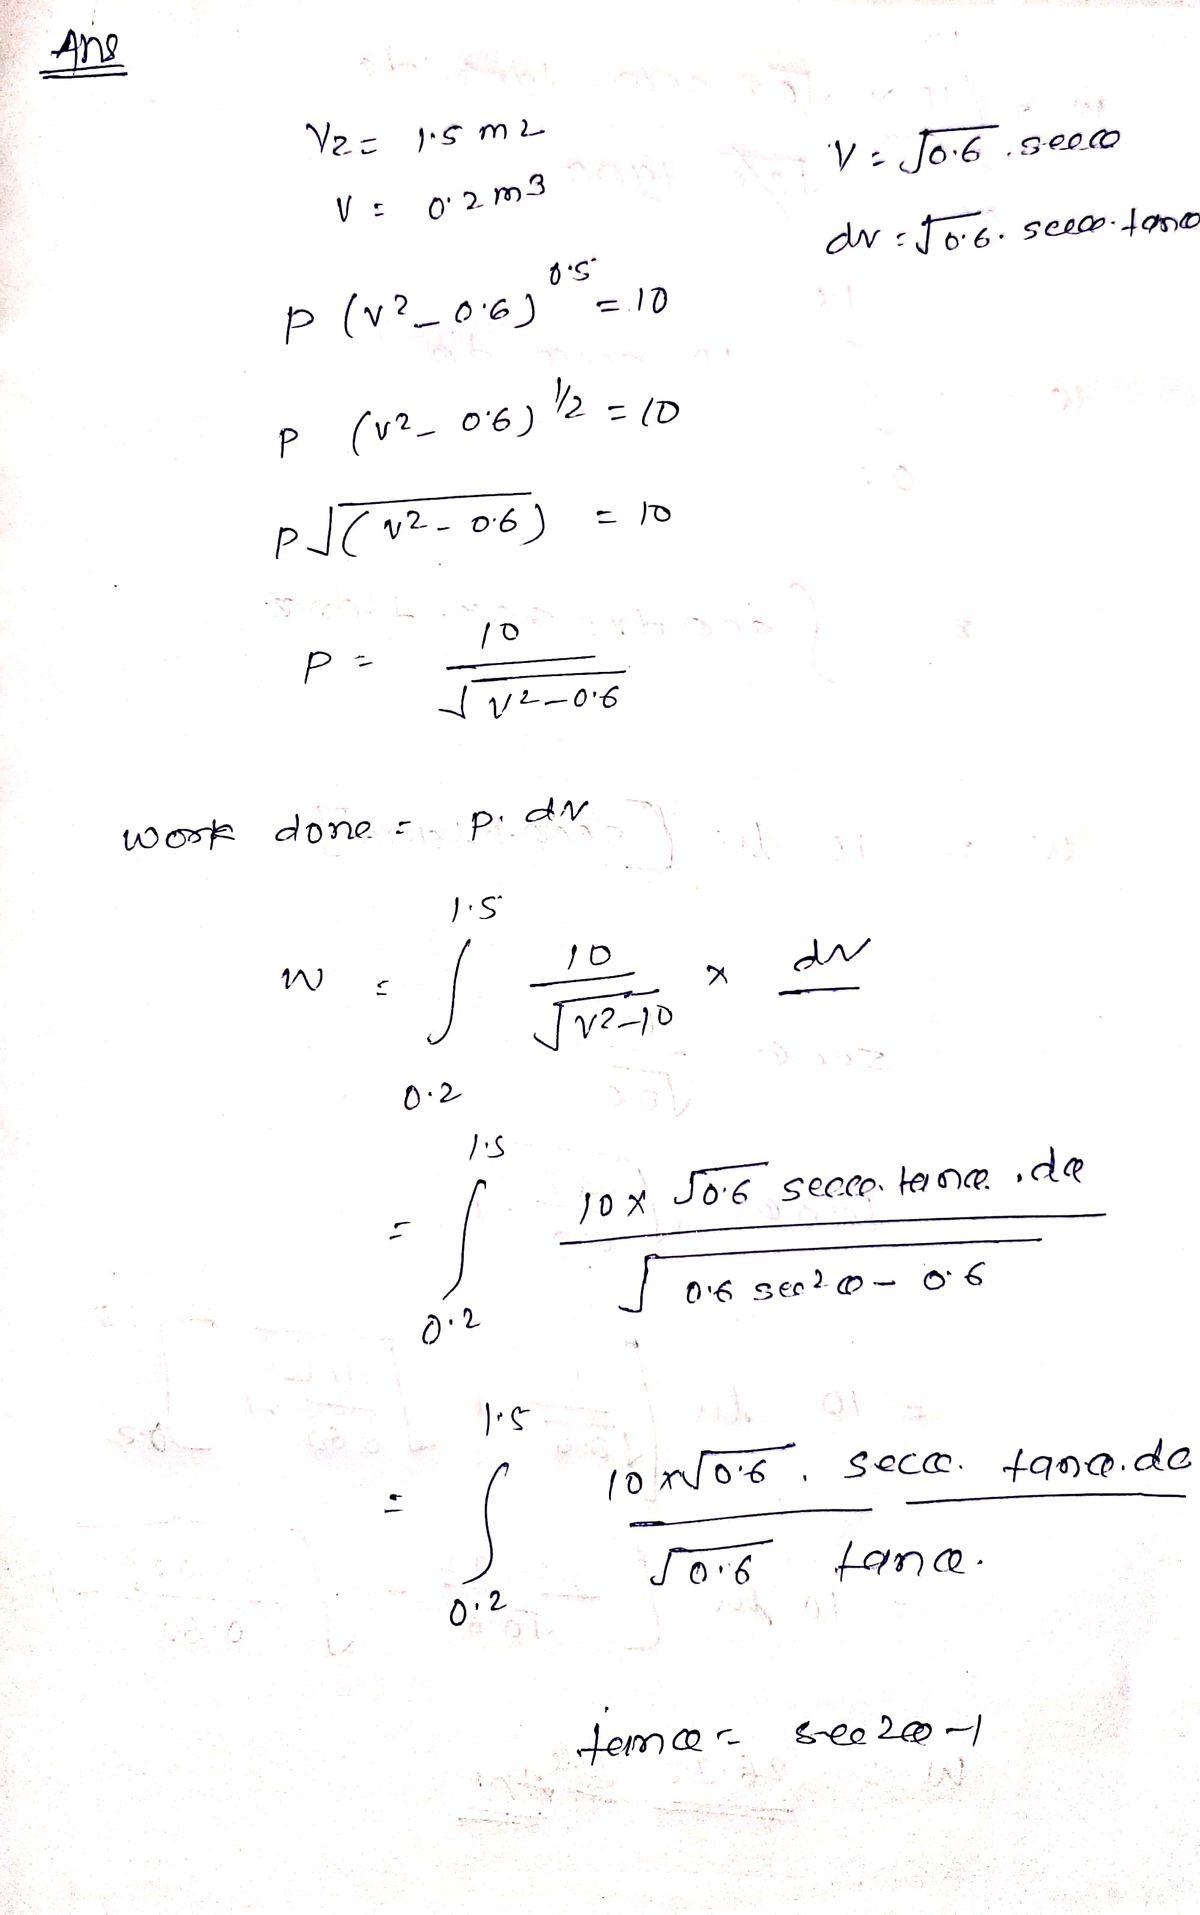 Ans
V2 = 1.5 m2
V = √0.6 . secθ
V = 0.2 m3
dv = √0.6 . secθ . tanθ
P (v2 - 0.6)^0.5 = 10
P (v2 - 0.6)^1/2 = 10
P √(v2 - 0.6) = 10
P = 10 / √v2 - 0.6
work done = p. dv
W = ∫ 0.2 1.5 10 / √v2 - 10 × dv
= ∫ 0.2 1.5 10 x √0.6 secθ. tanθ . dθ / √0.6 sec2θ - 0.6
= ∫ 0.2 1.5 10 x √0.6 . secθ. tanθ. dθ / √0.6 tanθ.
tanθ = sec2θ - 1